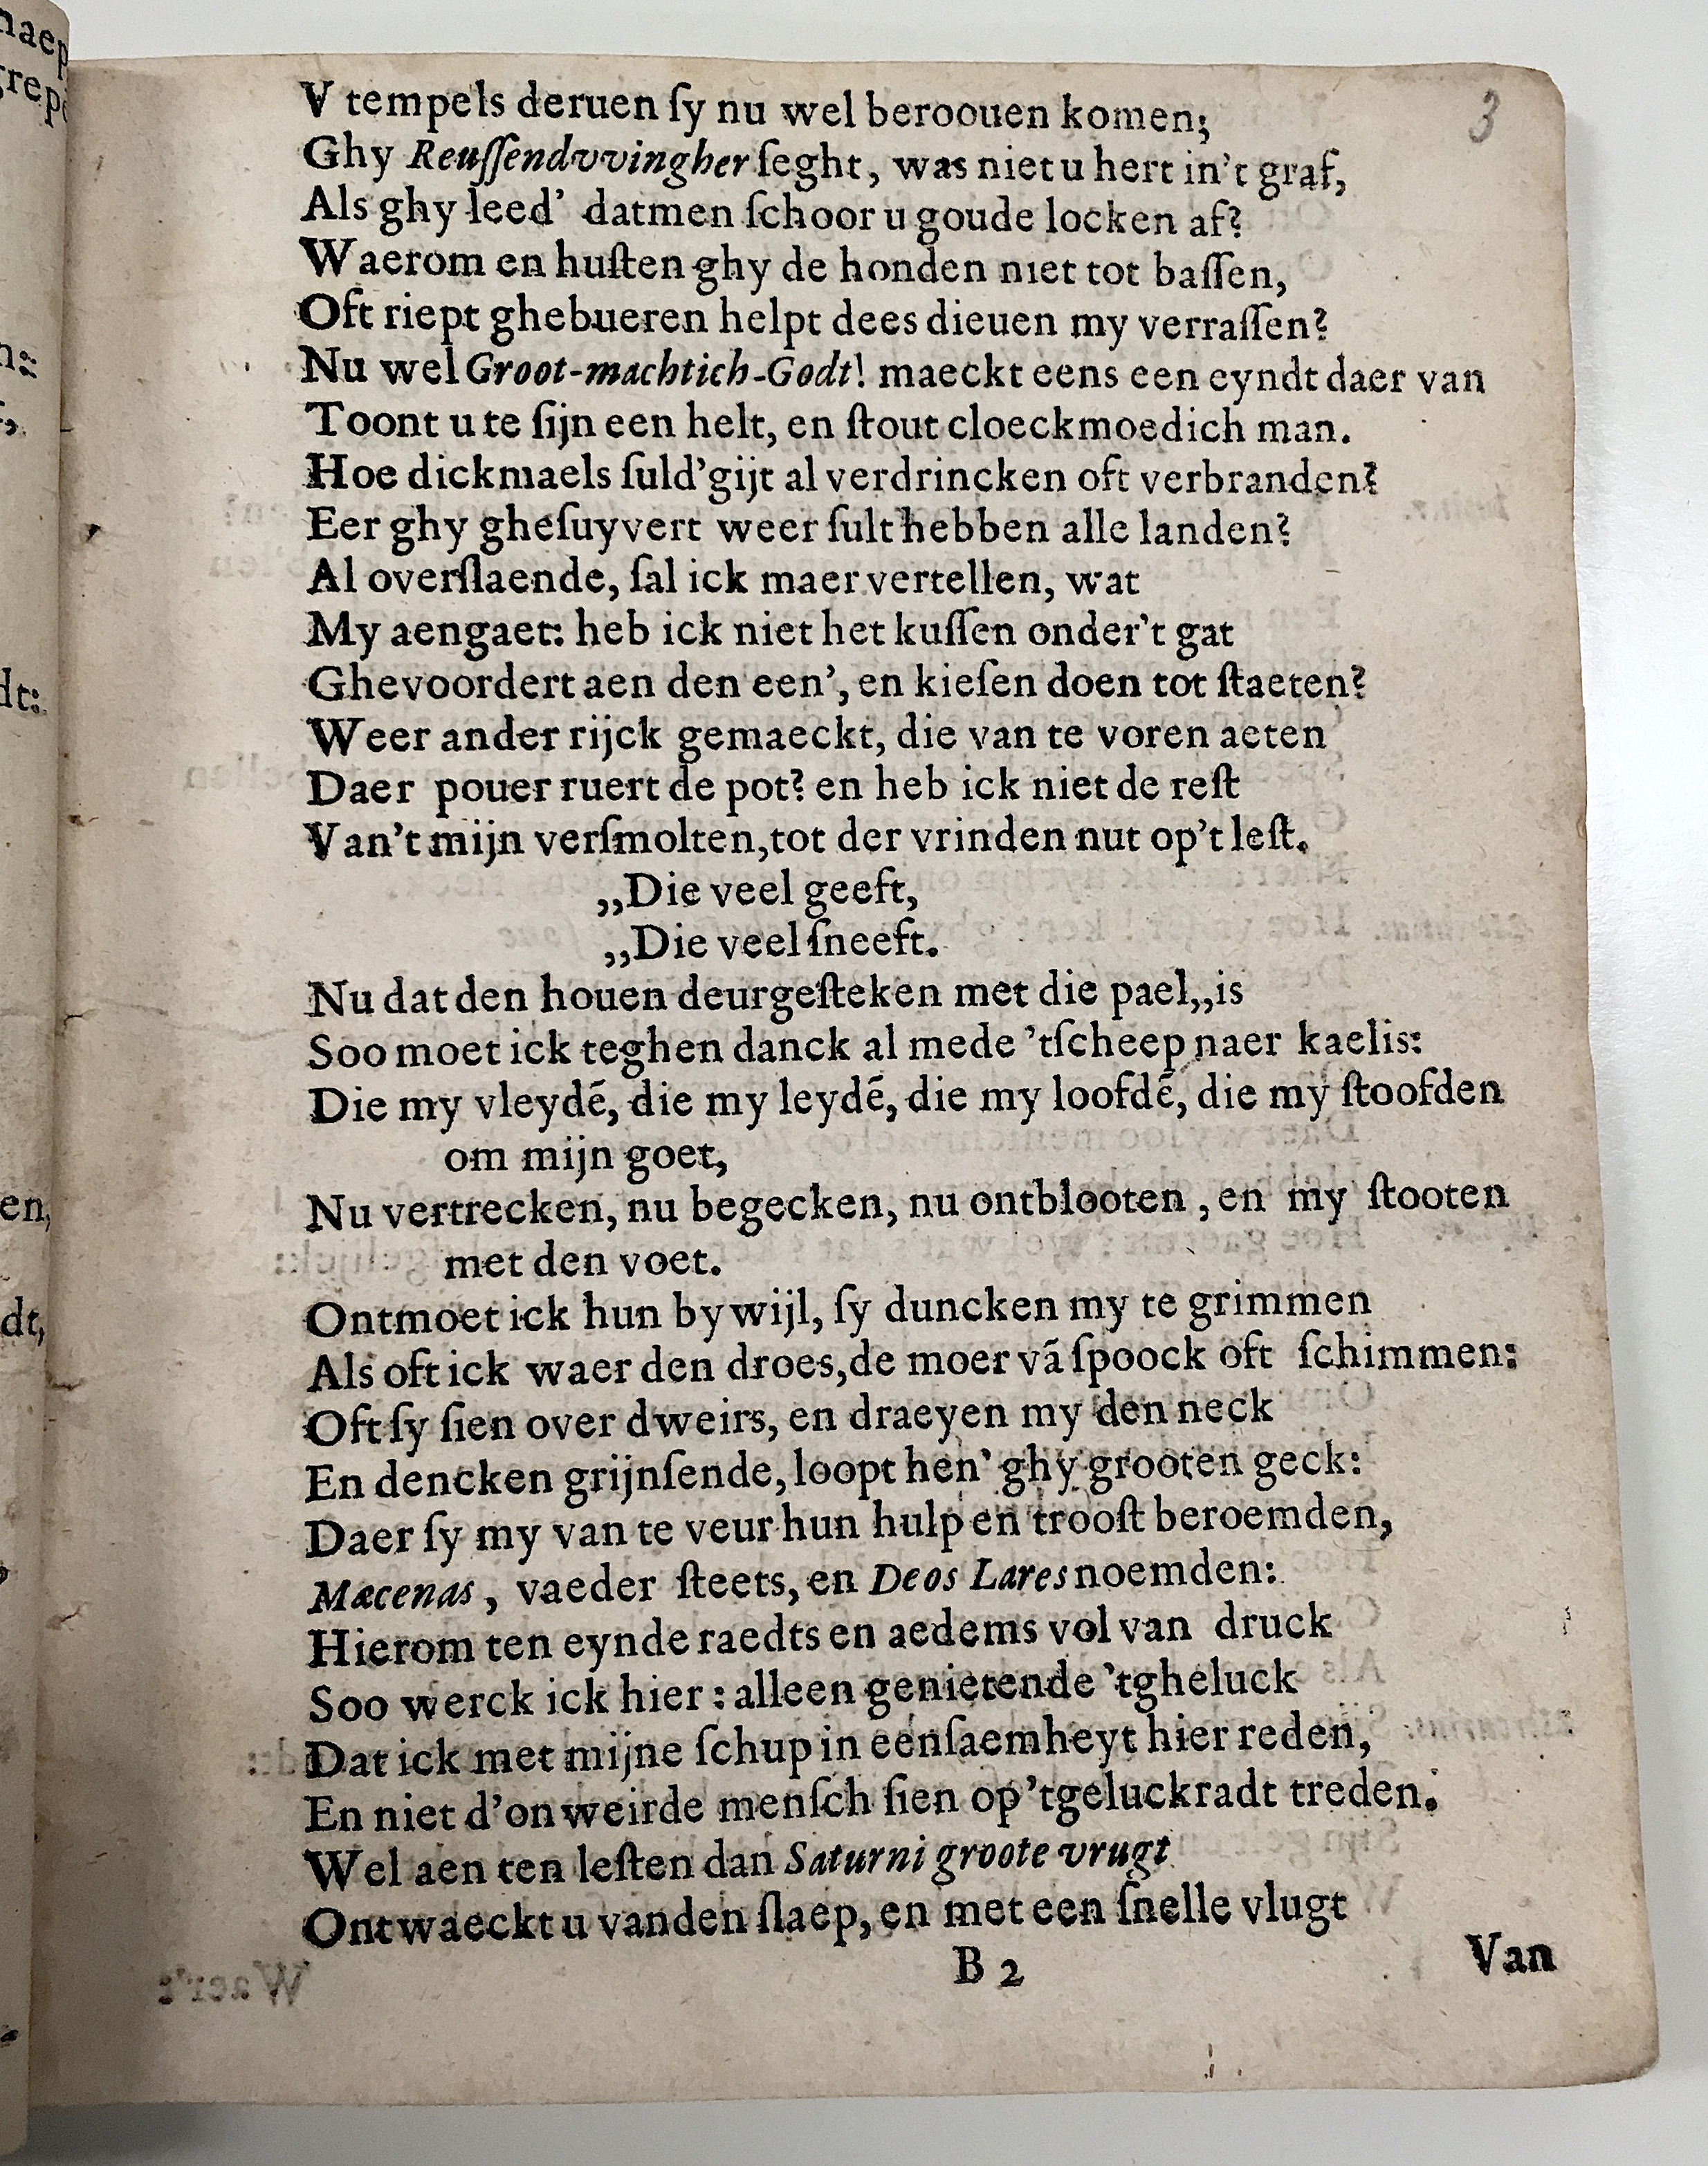 3
V tempels deruen ſy nu wel beroouen komen;
Ghy Reuſſendvvingher ſeght, was niet u hert in't graf,
Als ghy leed' datmen ſchoor u goude locken af?
Waerom en huſten ghy de honden niet tot baſſen,
Oft riept ghebueren helpt dees dieuen my verraſſen?
Nu wel Groot-machtich-Godt! maeckt eens een eyndt daer van
Toont u te ſijn een helt, en ſtout cloeckmoedich man.
Hoe dickmaels ſuld'gijt al verdrincken oft verbranden?
Eer ghy gheſuyvert weer ſult hebben alle landen?
Al overſlaende, ſal ick maer vertellen, wat
My aengaet: heb ick niet het kuſſen onder't gat
Ghevoordert aen den een', en kieſen doen tot ſtaeten?
Weer ander rijck gemaeckt, die van te voren aeten
Daer pouer ruert de pot? en heb ick niet de reſt
Van't mijn verſmolten, tot der vrinden nut op't leſt.
„Die veel geeft,
„Die veel ſneeft.
Nu dat den houen deurgeſteken met die pael„is
Soo moet ick teghen danck al mede 'tſcheep naer kaelis:
Die my vleydē, die my leydē, die my loofdē, die my ſtoofden
om mijn goet,
Nu vertrecken, nu begecken, nu ontblooten, en my ſtooten
met den voet.
Ontmoet ick hun by wijl, ſy duncken my te grimmen
Als oft ick waer den droes, de moer vā ſpoock oft ſchimmen:
Oft ſy ſien over dweirs, en draeyen my den neck
En dencken grijnſende, loopt hen' ghy grooten geck:
Daer ſy my van te veur hun hulp en trooſt beroemden,
Mæcenas, vaeder ſteets, en Deos Lares noemden:
Hierom ten eynde raedts en aedems vol van druck
Soo werck ick hier: alleen genietende 'tgheluck
Dat ick met mijne ſchup in eenſaemheyt hier reden,
En niet d'onweirde menſch ſien op 'tgeluckradt treden.
Wel aen ten leſten dan Saturni groote vrugt
Ontwaeckt u vanden ſlaep, en met een ſnelle vlugt
B 2
Van